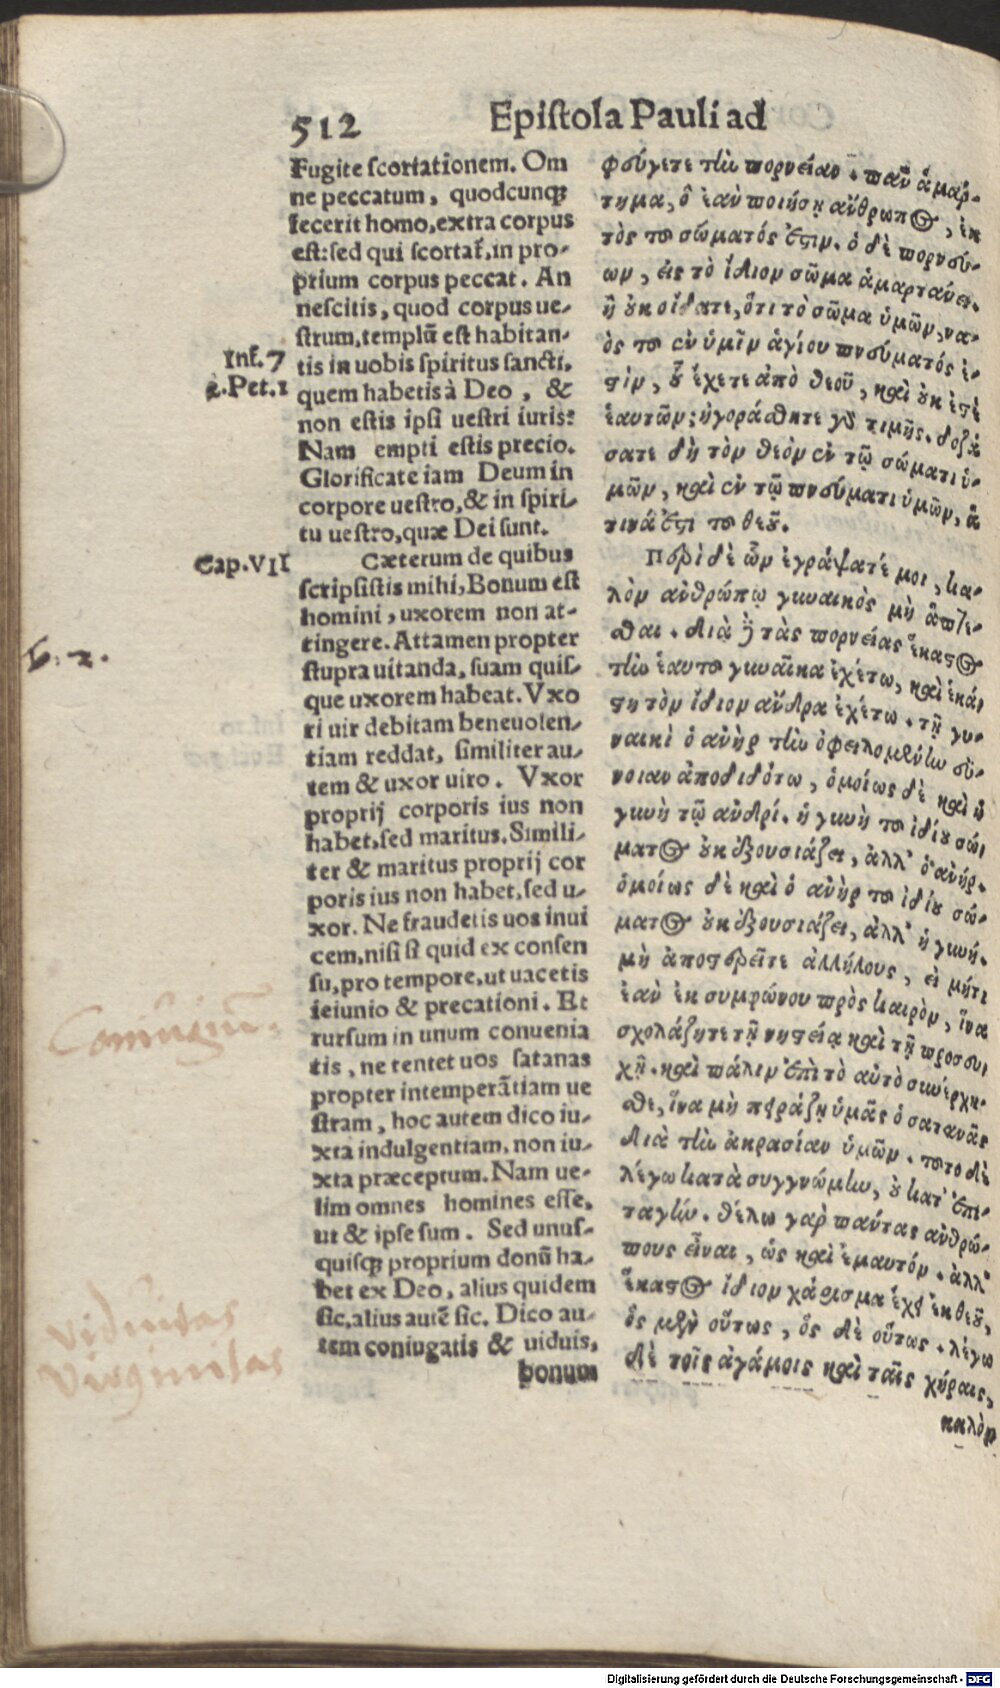 512
Epistola Pauli ad
Fugite scortationem. Om
ne peccatum, quodcunq;
fecerit homo, extra corpus
est: sed qui scortat᷑, in pro-
prium corpus peccat. An
nescitis, quod corpus ue-
strum, templũ est habitan-
Inf. 7
tis in uobis spiritus sancti,
2. Pet. 1
quem habetis à Deo, &
non estis ipsi uestri iuris:
Nam empti estis precio.
Glorificate iam Deum in
corpore uestro, & in spiri-
tu uestro, quæ Dei sunt.
Cap. VII
Cæterum de quibus
scripsistis mihi, Bonum est
homini, uxorem non at-
tingere. Attamen propter
stupra uitanda, suam quis-
que uxorem habeat. Vxo
ri uir debitam beneuolen-
tiam reddat, similiter au-
tem & uxor uiro. Vxor
proprij corporis ius non
habet, sed maritus. Simili-
ter & maritus proprij cor
poris ius non habet, sed u-
xor. Ne fraudetis uos inui
cem, nisi si quid ex consen
su, pro tempore, ut uacetis
ieiunio & precationi. Et
Coniugiũ.
rursum in unum conuenia
tis, ne tentet uos satanas
propter intemperãtiam ue
stram, hoc autem dico iu-
xta indulgentiam, non iu-
xta præceptum. Nam ue-
lim omnes homines esse,
ut & ipse sum. Sed unus-
quisq; proprium donũ ha-
bet ex Deo, alius quidem
viduitas
sic, alius autẽ sic. Dico au-
virginitas
tem coniugatis & uiduis,
bonum
φεύγετε τὴν πορνείαν. πᾶν ἁμάρ-
τημα, ὃ ἐὰν ποιήσῃ ἄνθρωπος, ἐκ
τὸς τοῦ σώματός ἐστιν. ὁ δὲ πορνεύ-
ων, εἰς τὸ ἴδιον σῶμα ἁμαρτάνει.
ἢ οὐκ οἴδατε, ὅτι τὸ σῶμα ὑμῶν, να-
ὸς τοῦ ἐν ὑμῖν ἁγίου πνεύματός ἐ-
στιν, οὗ ἔχετε ἀπὸ θεοῦ, καὶ οὐκ ἐστὲ
ἑαυτῶν; ἠγοράσθητε γὰρ τιμῆς. δοξά
σατε δὴ τὸν θεὸν ἐν τῷ σώματι ὑ-
μῶν, καὶ ἐν τῷ πνεύματι ὑμῶν, ἅ
τινά ἐστι τοῦ θεοῦ.
Περὶ δὲ ὧν ἐγράψατέ μοι, κα-
λὸν ἀνθρώπῳ γυναικὸς μὴ ἅπτε-
σθαι. διὰ δὲ τὰς πορνείας ἕκαστος
τὴν ἑαυτοῦ γυναῖκα ἐχέτω, καὶ ἑκά
στη τὸν ἴδιον ἄνδρα ἐχέτω. τῇ γυ-
ναικὶ ὁ ἀνὴρ τὴν ὀφειλομένην εὔ-
νοιαν ἀποδιδότω, ὁμοίως δὲ καὶ ἡ
γυνὴ τῷ ἀνδρί. ἡ γυνὴ τοῦ ἰδίου σώ
ματος οὐκ ἐξουσιάζει, ἀλλ' ὁ ἀνήρ.
ὁμοίως δὲ καὶ ὁ ἀνὴρ τοῦ ἰδίου σώ-
ματος οὐκ ἐξουσιάζει, ἀλλ' ἡ γυνή.
μὴ ἀποστερεῖτε ἀλλήλους, εἰ μήτι
ἐὰν ἐκ συμφώνου πρὸς καιρὸν, ἵνα
σχολάζητε τῇ νηστείᾳ καὶ τῇ προσευ
χῇ. καὶ πάλιν ἐπὶ τὸ αὐτὸ συνέρχη-
σθε, ἵνα μὴ πειράζῃ ὑμᾶς ὁ σατανᾶς
διὰ τὴν ἀκρασίαν ὑμῶν. τοῦτο δὲ
λέγω κατὰ συγγνώμην, οὐ κατ' ἐπι-
ταγήν. θέλω γὰρ πάντας ἀνθρώ-
πους εἶναι, ὡς καὶ ἐμαυτόν. ἀλλ'
ἕκαστος ἴδιον χάρισμα ἔχει ἐκ θεοῦ,
ὃς μὲν οὕτως, ὃς δὲ οὕτως. λέγω
δὲ τοῖς ἀγάμοις καὶ ταῖς χήραις,
καλὸν
Digitalisierung gefördert durch die Deutsche Forschungsgemeinschaft - DFG